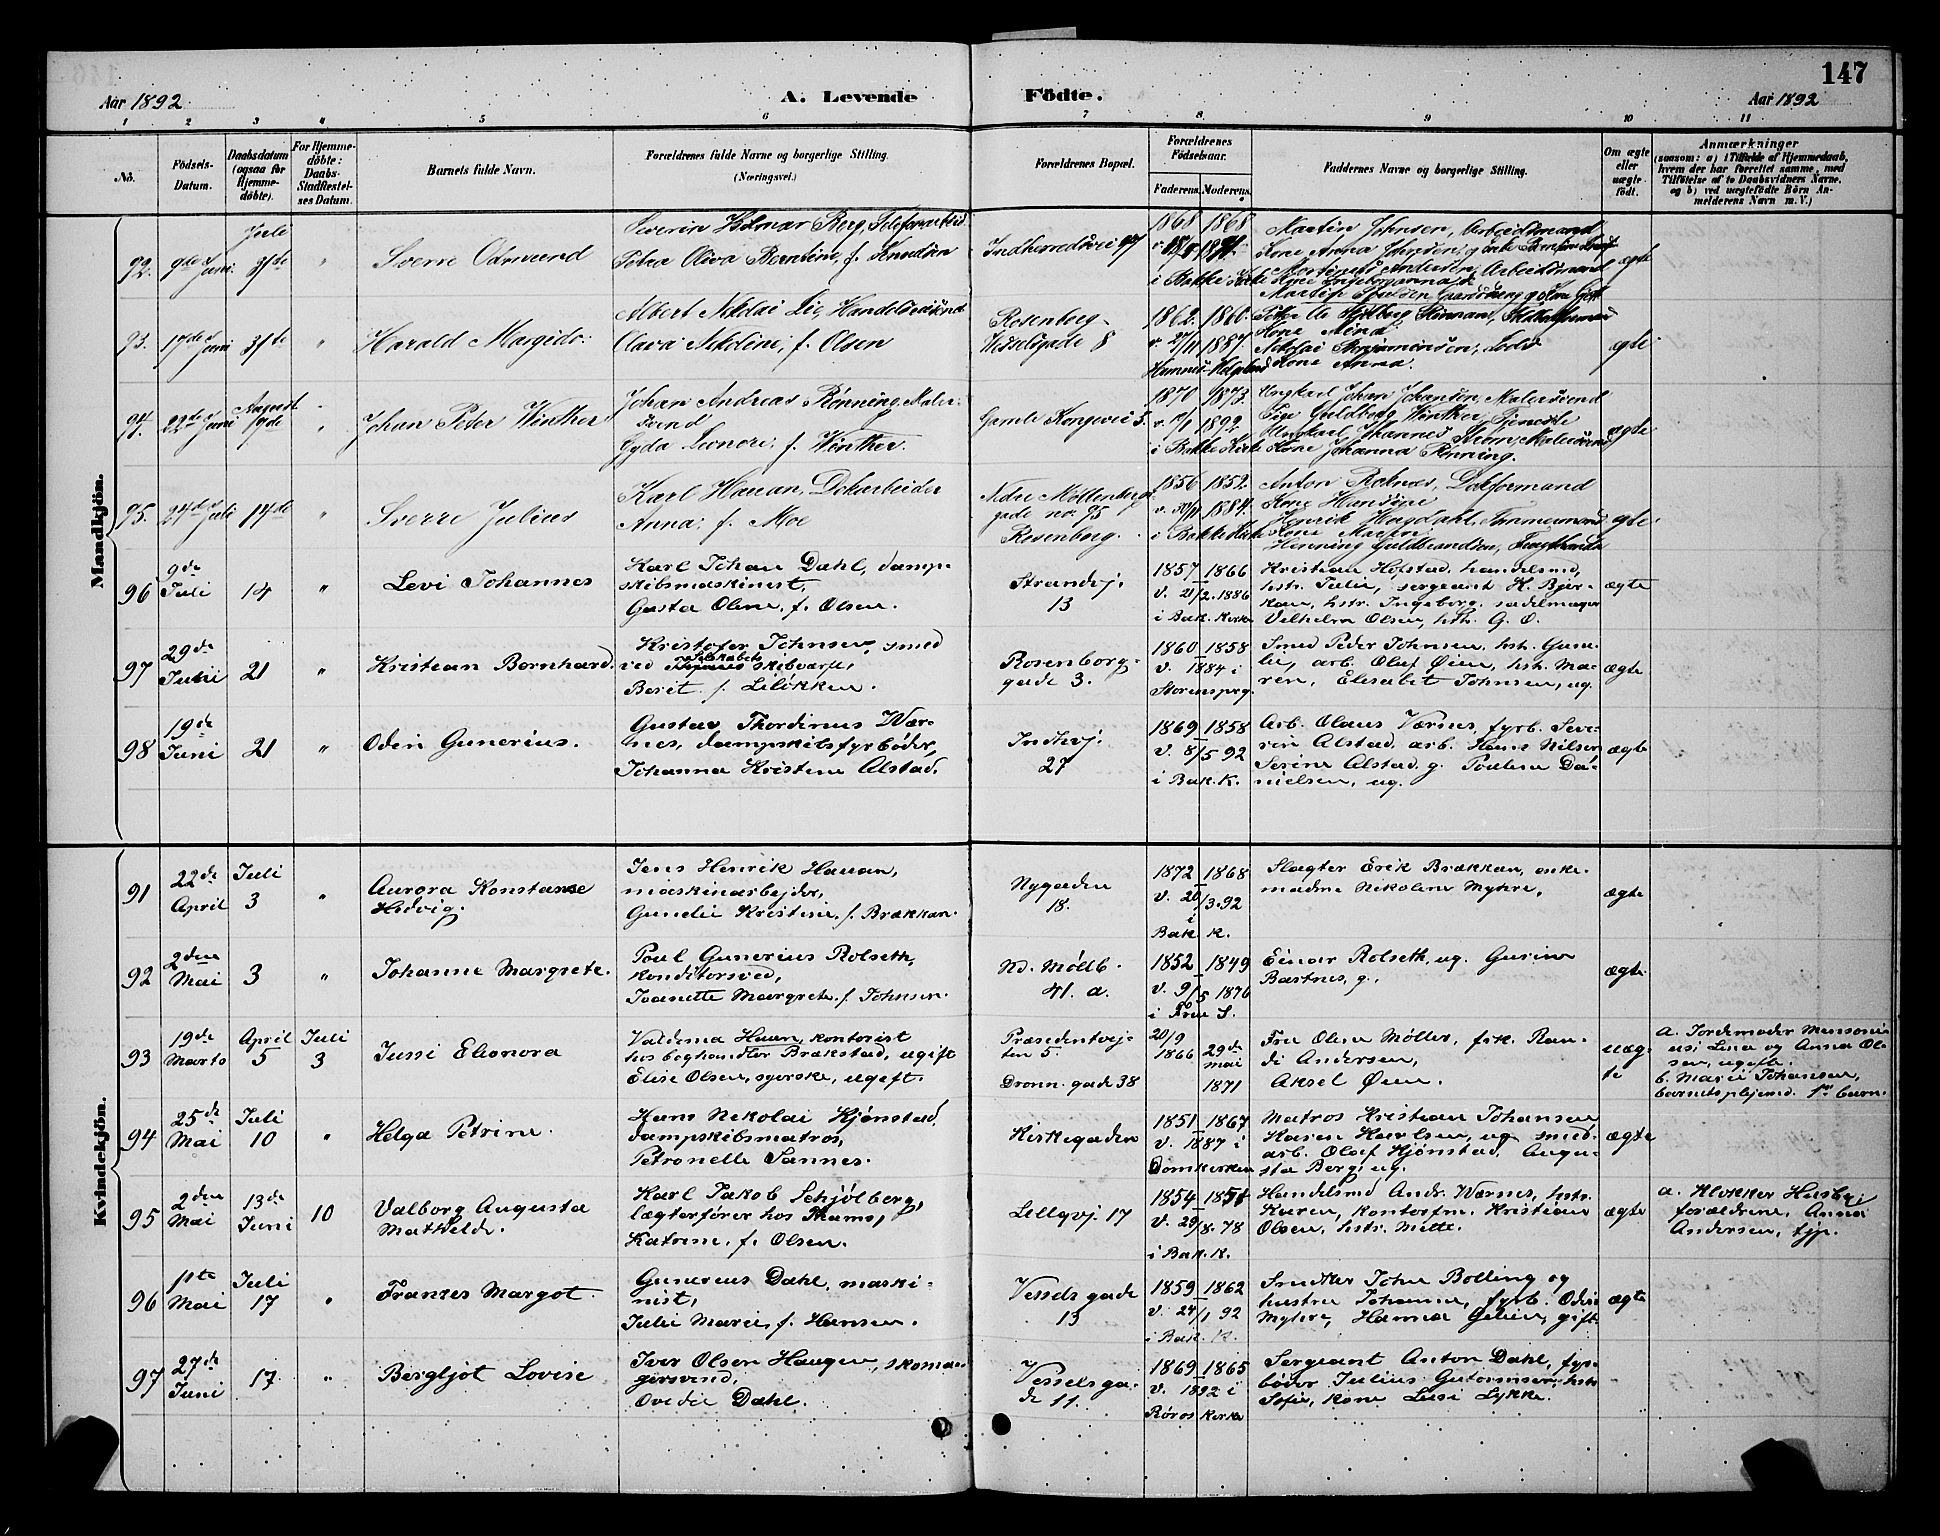 147
Aar 1892.
A. Levende
Födte.
Aar 1892
1 2 3 4 5 6 7 8 9 10 11
No.
Födsels-
Datum.
Daabsdatum
(ogsaa for
Hjemme-
döbte).
For Hjemme-
döbte:
Daabs-
Stadfæstel-
ses Datum.
Barnets fulde Navn.
Forældrenes fulde Navne og borgerlige Stilling.
(Næringsvei.)
Forældrenes Bopæl.
Forældrenes
Födselsaar.
Faderens. Moderens.
Faddernes Navne og borgerlige Stilling.
Om ægte
eller
uægte
födt.
Anmærkninger
(saasom: a) i Tilfælde af Hjemmedaab,
hvem der har forrettet samme, med
Tilföielse af to Daabsvidners Navne,
og b) ved uægtefödte Börn An-
melderens Navn m. V.)
Mandkjön.
92.
9de Juni
Juli
3die
"
Sverre Odmund
Severin Hilmar Berg, Telefonarbeid.
Petra Oliva Berntine, f. Knudsen
Indherredsvei 47
1868 1868
i Bakke Kirke
Martin Johnsen, Arbeidsmand
Kone Anna Johnsen,
Martinus Andersen, Arbeidsmand
Kone Ingeborganna
ægte
93.
17de Juni
3die
"
Harald Margido:
Albert Nikolai Lie, Handelsbetjent
Clara Nikoline, f. Olsen
Rosenborg-
Wesselsgade 8
1862. 1860.
v. 27/11 1887.
Hemnes Helgeland
Kone Mina
Nikolai Benjaminsen, Lods
Kone Anna.
ægte
94.
22de Juni
August
19de
"
Johan Peter Winther
Johan Andreas Rønning, Maler-
svend
Gyda Leonore, f. Winther.
Gamle Kongevei 5.
1870 1873.
v. 17/1 1892.
i Bakke Kirke
Ungkarl Johan Johansen, Malersvend
Pige Guldborg Winther, Tjeneste
Ungkarl Johannes Strøm, Malersvend
Kone Johanna Rønning.
ægte
95.
24de Juli
14de
"
Sverre Julius
Karl Hauan, Dokarbeider
Anna, f. Moe
Nedre Møllenbergs
gade no. 95
Rosenborg.
1856 1852.
1884.
i Bakke Kirke
Anton Rotnes, Dokformand
Kone Hansine
Henrik Hagdahl, Tømmermand
Kone Maren
Henning Guldbrandsen,
ægte
96
9de
Juli
14
"
Levi Johannes
Karl Johan Dahl, damp-
skibsmaskinist,
Gusta Oline, f. Olsen.
Strandvj.
13
1857 1866
v. 21/2. 1886
i Bak. Kirke
Kristian Hofstad, handelsmd,
hstr. Julie, sergeant H. Bjer-
kan, hstr. Ingeborg, sadelmager
Vilhelm Olsen, hstr. G. O.
ægte
97
29de
Juni
21
"
Kristian Bernhard.
Kristofer Johnsen, smed
ved selskabets skibværft,
Berit f. Liløkken.
Rosenborg-
gade 3.
1860 1858
v. 1884 i
Storensprg.
Smed Peder Johnsen, hst. Gune-
lie, arb. Oluf Øien, hst. Ma-
ren, Elisabet Johnsen, ug.
ægte
98
19de
Juni
21
"
Odin Gunerius.
Gustav Thordinus Vær-
nes, dampskibsfyrbøder,
Johanna Kristine Alstad.
Indhvj.
27
1869 1858
v. 8/5 92
i Bak. K.
Arb. Olaus Værnes, fyrb. Seve-
rin Alstad, arb. Hans Nilsen
Serine Alstad g. Pauline Da-
nielsen, ug.
ægte
Kvindekjön.
91
22de
April
Juli
3
"
Aurora Konstanse
Hedvig.
Jens Henrik Hauan,
maskinarbejder,
Gunelie Kristine, f. Brækkan.
Nygaden
18.
1872 1868
v. 20/3. 92
i
Bak K.
Slagter Erik Brækkan, enke-
madme Nikoline Myhre,
ægte
92
2den
Mai
3
"
Johanne Margrete.
Poul Gunerius Rolseth,
konditorsved,
Jeanette Margrete f. Johnsen.
Nd. Møllb.
41. a.
1852 1849
v. 9/5 1876
i Frue S.
Einar Rolseth, ug. Gurine
Bartnes, g.
ægte
93
19de
Marts
April
5
Juli
3
Jussi Eleonora
Valdema Hauen, kontorist
hos boghandler Brækstad, ugift
Elise Olsen, syerske, ugift.
Præsidentvej-
ten 5.
Dronn. gade 38
20/9
1866
29de
mai
1871
Fru Oline Møller, frk. Ran-
di Andersen,
Aksel Øien.
uæg-
te
a. Jordemoder
Line og Anna Ol-
sen, ugifte.
b. Marie Johansen,
barnets plejemd. 1ste barn.
94
25de
Mai
Juli
10
"
Helga Petrine.
Hans Nikolai Kjønstad,
dampskibsmatros,
Petronelle Sannes.
Kirkegaden
1851 1867
v. 1887 i
Domkirken
Matros Kristian Johansen
Karen Karlsen, ug. smed-
arb. Olaf Kjønstad, Augu-
sta Berg, ug.
ægte
95
2den
Mai
13de
Juni
10
Valborg Augusta
Mathilde.
Karl Jakob Schjølberg,
lægterfører hos Thams,
Katrine, f. Olsen.
Lillegvj. 17
1854
v. 29/8. 78
i Bak. K.
Handelsmd Andr. Wærnes, hstr.
Karen, kontorfm. Kristian
Olsen, hstr. Mette.
ægte
a. Klokker Husby,
forældrene, Anna
Andersen, tjp.
96
1ste
Mai
Juli
17
"
Franzes Margot.
Gunerius Dahl, maski-
nist,
Julie Marie, f. Hansen.
Vessels gade
13
1859 1862
v. 24/1 92
i Bak. K.
Snedker John Bolling og
hustru Johanne, fyrb. Odin
Myhre, Hanna Gilien, gift
ægte
97
27de
Juni
17
"
Bergljot Lovise
Iver Olsen Haugen, skoma-
gersvend,
Ovedie Dahl.
Vesselsga-
de 11.
1869 1865
v. 1892 i
Røros Kirke
Sergeant Anton Dahl, fyr-
bøder Julius Gutormsen, hstr
Sofie, kone Lusi Lykke.